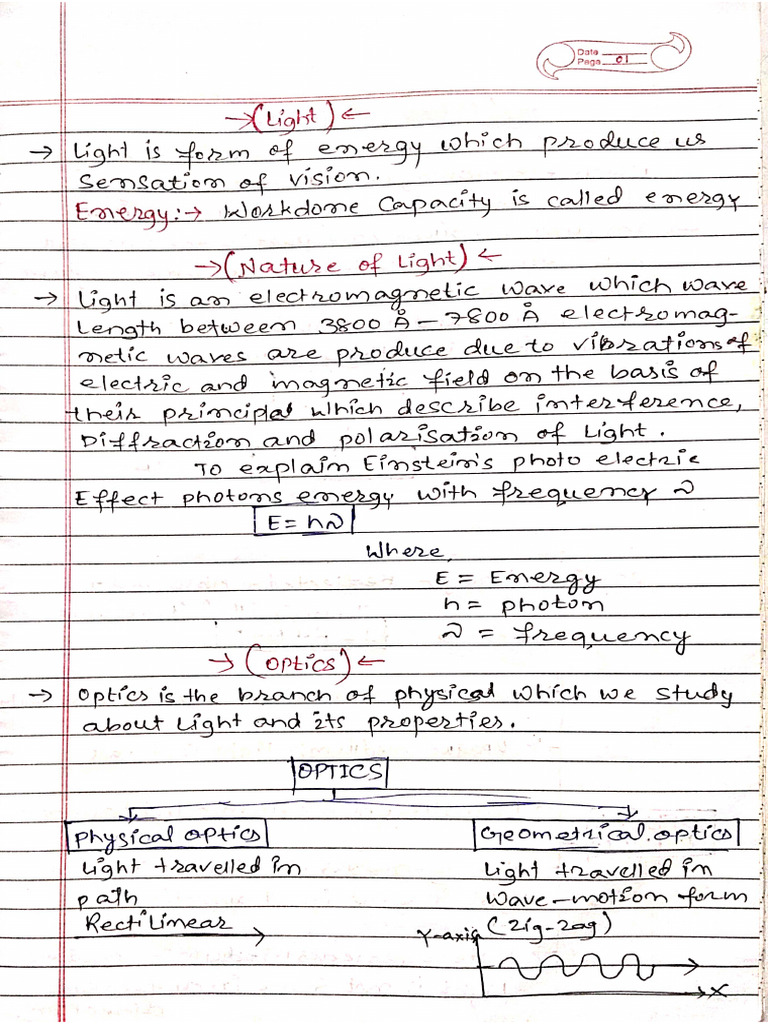 Date
Page 01
→(Light)←
→ Light is form of energy which produce us
sensation of vision.
Energy:→ Workdone Capacity is called energy
→(Nature of Light)←
→ Light is an electromagnetic wave which wave
Length between 3800 Å – 7800 Å electromag-
netic waves are produce due to vibrations of
electric and magnetic field on the basis of
their principal which describe interference,
Diffraction and polarisation of Light.
To explain Einstein's photo electric
Effect photons energy with frequency ν
E = hν
Where,
E = Energy
h = photon
ν = frequency
→ (Optics) ←
→ Optics is the branch of physical which we study
about Light and its properties.
OPTICS
Physical optics
Geometrical optics
Light travelled in
path
Rectilinear
Light travelled in
wave-motion form
(Zig-Zag)
Y-axis
X